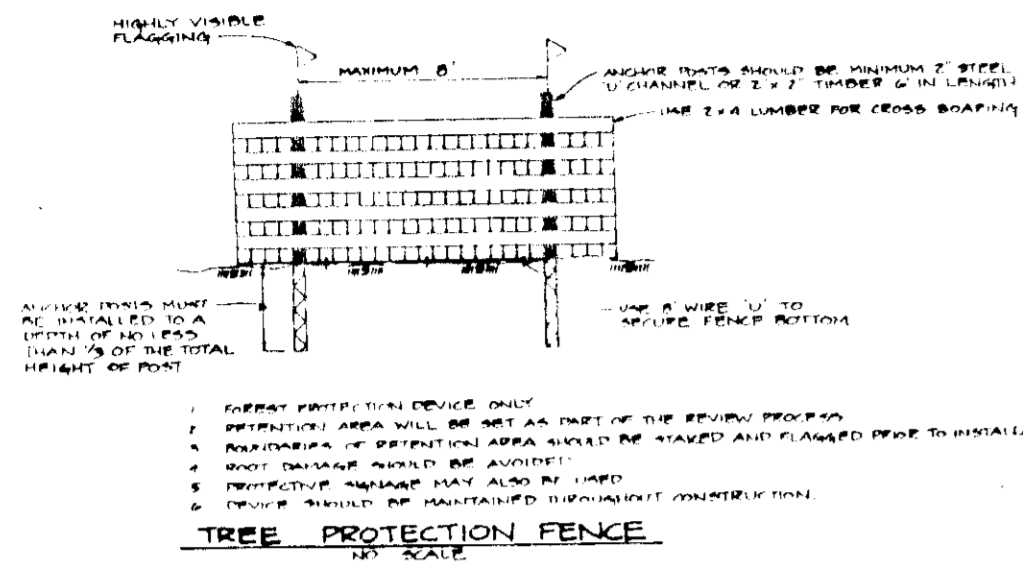 HIGHLY VISIBLE
FLAGGING
MAXIMUM 8'
ANCHOR POSTS SHOULD BE MINIMUM 2" STEEL
'U' CHANNEL OR 2" x 2" TIMBER 6' IN LENGTH
USE 2x4 LUMBER FOR CROSS BOARING
ANCHOR POSTS MUST
BE INSTALLED TO A
DEPTH OF NO LESS
THAN 1/3 OF THE TOTAL
HEIGHT OF POST
USE 8" WIRE 'U' TO
SECURE FENCE BOTTOM
1 FOREST PROTECTION DEVICE ONLY
2 RETENTION AREA WILL BE SET AS PART OF THE REVIEW PROCESS
3 BOUNDARIES OF RETENTION AREA SHOULD BE STAKED AND FLAGGED PRIOR TO INSTALLA
4 ROOT DAMAGE SHOULD BE AVOIDED
5 PROTECTIVE SIGNAGE MAY ALSO BE USED
6 DEVICE SHOULD BE MAINTAINED THROUGHOUT CONSTRUCTION.
TREE PROTECTION FENCE
NO SCALE